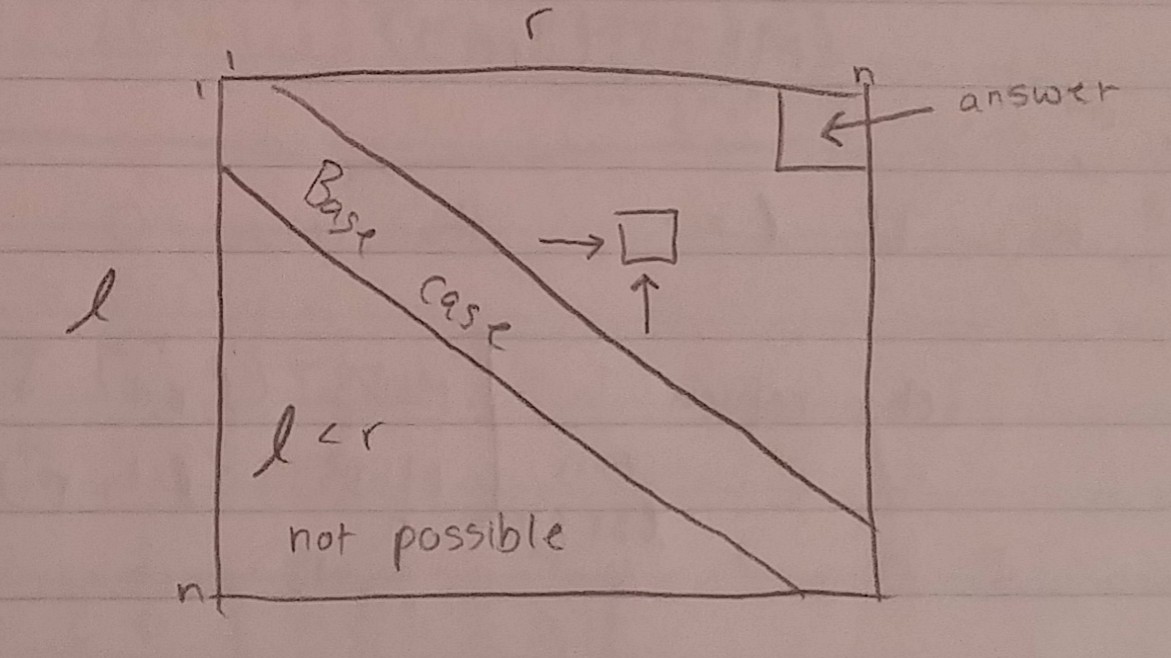 r
1
1
n
answer
Base
case
l
l < r
not possible
n